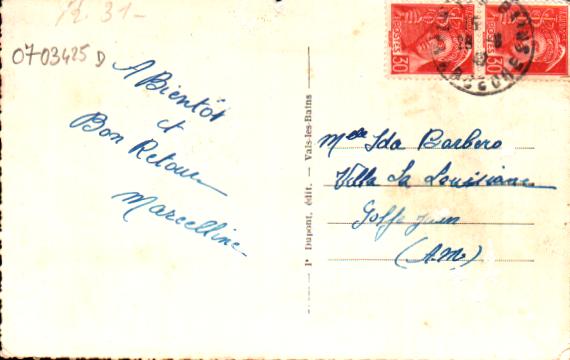 12.31-
0703425 D
A Bientôt
et
Bon Retour
Marcelline
Pr Dupont, édit. — Vals-les-Bains
POSTES 30
POSTES 30
Melle Ida Barbero
Villa La Louisiane
Golfe Juan
(A.M.)